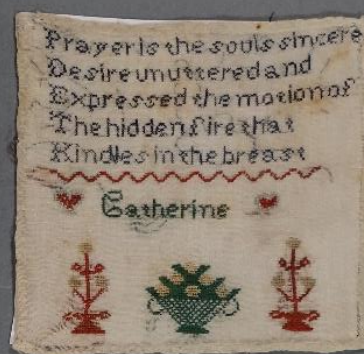 Prayer is the souls sincere
Desire unuttered and
Expressed the motion of
The hidden fire that
Kindles in the breast
Catherine